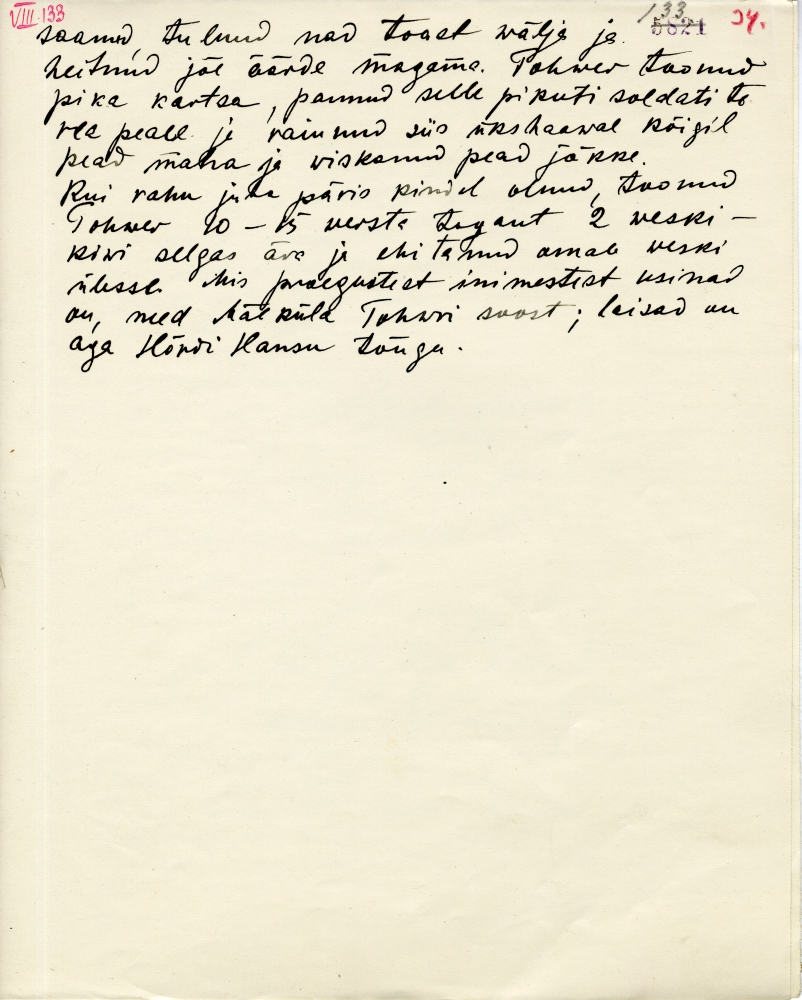 VIII 133
133
5821 24.
saanud, tulnud nad toast wälja ja
heitnud jõe äärde magama. Tohwer toonud
pika kartsa, pannud selle pikuti soldatite
rea peale ja raiunud siis ükshaawal kõigil
pead maha ja wiskanud pead jõkke.
Kui rahu juba päris kindel olnud, toonud
Tohwer 10 – 15 versta tagant 2 weski-
kiwi selgas ära ja ehitanud omale weski
ülesse. Mis praegustest inimestest usinad
on, need Mäeküla Tohwri soost; laisad on
aga Hördi Hansu tõugu.